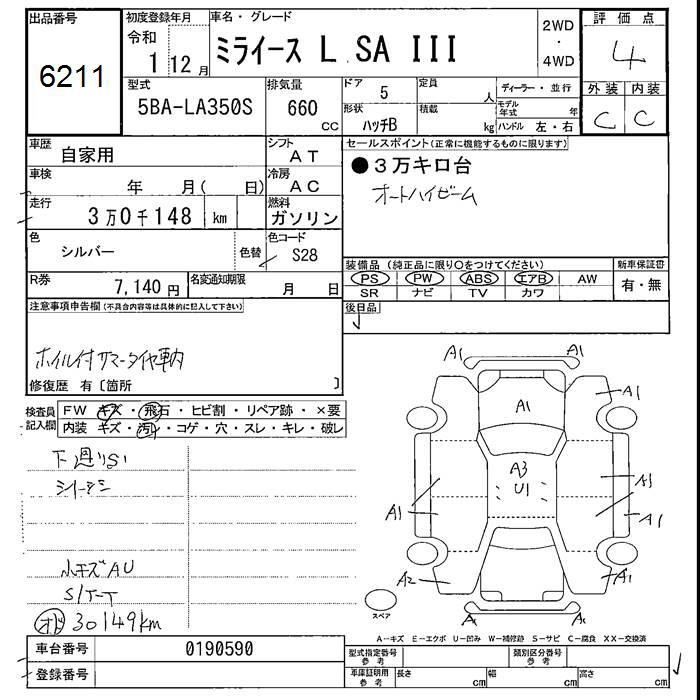 出品番号
6211
初度登録年月
令和
1 12月
車名・グレード
ミライース L SA III
2WD
・
4WD
評価点
4
外装 内装
C C
型式
5BA-LA350S
排気量
660
CC
ドア
5
形状
ハッチB
定員
人
積載
kg
ディーラー・並行
モデル年式 年
ハンドル 左・右
車歴
自家用
シフト
AT
車検
年 月( 日)
冷房
AC
走行
3万0千148 km
燃料
ガソリン
色
シルバー
色替
色コード
S28
R券
7,140円
名変通知期限
月 日
セールスポイント(正常に機能するものに限ります)
●3万キロ台
オートハイビーム
装備品(純正品に限り〇をつけてください)
PS PW ABS エアB AW
SR ナビ TV カワ
新車保証書
有・無
後日品
注意事項申告欄(不具合内容等は具体的に記入して下さい)
ホイル付サマータイヤ車内
修復歴 有〔箇所 〕
検査員
記入欄
FW キズ・飛石・ヒビ割・リペア跡・×要
内装 キズ・汚レ・コゲ・穴・スレ・キレ・破レ
下廻りS1
小キズAU
オド 30149km
A1 A1
A1
A1
A3
U1
A1
A1
A1
A2
A1
A1 A1
スペア
A-キズ E-エクボ U-凹み W-補修跡 S-サビ C-腐食 XX-交換済
車台番号
0190590
登録番号
型式指定番号
参考
類別区分番号
参考
車庫証明用
参考
長さ cm
幅 cm
高さ cm